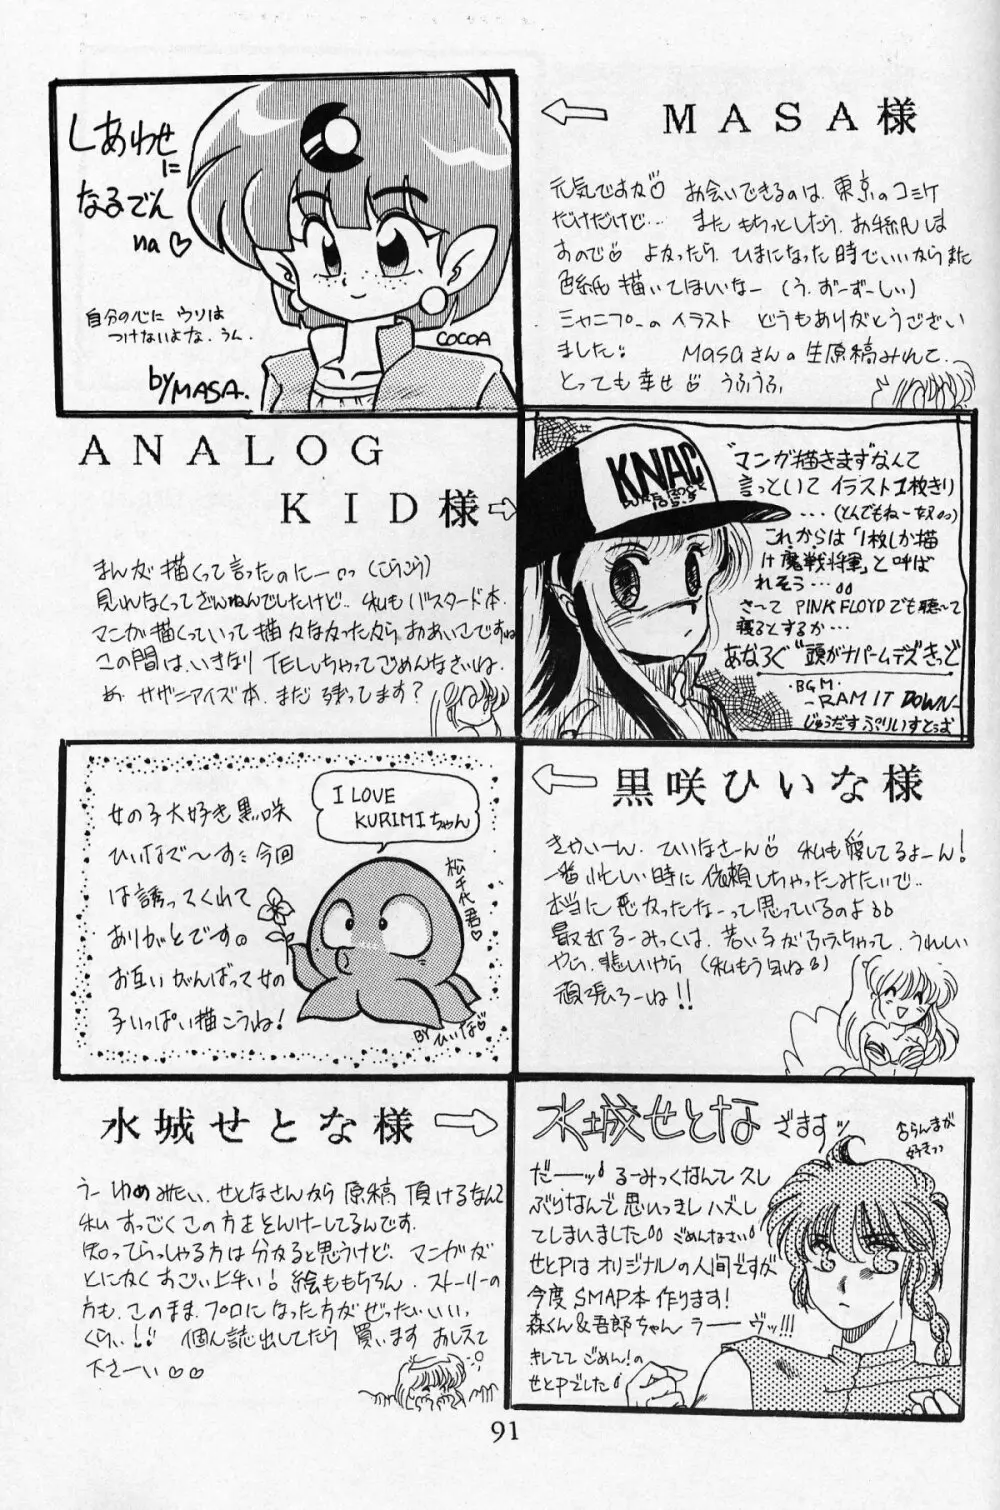 しあわせ
に
なるでん
na♡
自分の心に ウソは
つけないよな。うん。
COCOA
by MASA.
MASA様
元気ですか♡ お会いできるのは、東京のコミケ
だけだけど… また もちっとしたら、お手紙しま
すので♡ よかったら、ひまになった時でいいからまた
色紙 描いてほしいなー (う、ずーずーしい)
イラスト どうもありがとうござい
ました♡ Masaさんの生原稿みれて、
とっても幸せ♡ うふうふ
ANALOG
KID様
まんが描くって言ったのにー
見れなくってざんねんでしたけど… 私もバスタード本、
マンガ描くっていって描かなかったから、おあいこですね
この間は、いきなりTELしちゃってごめんなさいね。
あ、サザンアイズ本、まだ残ってします?
KNAC
PURE ROCK
105.5
"マンガ描きます"なんて
言っといて イラスト1枚きり
…(とんでもねー奴)
これからは「1枚しか描
け魔戦将軍」と呼ば
れそう…
さ〜て PINK FLOYDでも聴〜て
寝るとするか…
あなろぐ"頭がナパームデズきっど
・BGM・
-RAM IT DOWN-
じゅうだすぷりいすとぅ
女の子大好き黒咲
ひいなで〜す 今回
は誘ってくれて
ありがとです。
お互いがんばって女の
子いっぱい描こうね!
I LOVE
KURIMIちゃん
松千代君♡
BYひいな♡
黒咲ひいな様
きゃいーん、ひいなさーん♡ 私も愛してるよーん!
一番忙しい時に依頼しちゃったみたいで…
本当に悪かったなーって思っているのよ
最近るーみっくは、若い子がふえちゃって、うれしい
やら、悲しいやら (私もう
頑張ろーね!!
水城せとな様
うー ゆめみたい、せとなさんから原稿頂けるなんて
私すっごくこの方をそんけーしてるんです。
知ってらっしゃる方は分かると思うけど、マンガが
とにかくすごい上手い! 絵ももちろん、ストーリーの
方も、このまま、プロになった方がぜったいいい、
くらい!! 個人誌出してたら 買います おしえて
下さーい♡♡
水城せとな ざますッ
らんまが
好きっ
だーーッ るーみっくなんて久し
ぶりなんで思いっきしハズし
てしまいました ごめんなさい
せとPはオリジナルの人間ですが
今度SMAP本作ります!
森くん&吾郎ちゃん ラーーヴッ!!!
きしてて ごめん!の
せとPでした
91